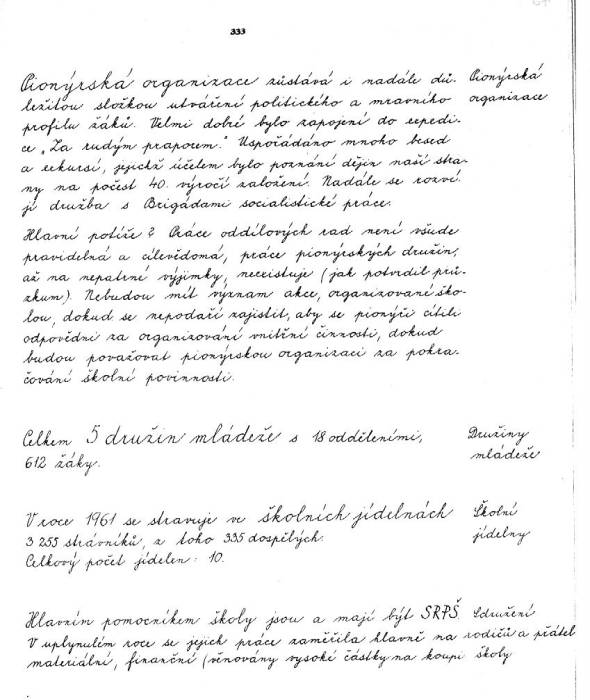 333
Pionýrská organizace zůstává i nadále dů- Pionýrská
ležitou složkou utváření politického a mravního organizace
profilu žáků. Velmi dobré bylo zapojení do expedi-
ce „Za rudým praporem." Uspořádáno mnoho besed
a exkursí, jejichž účelem bylo poznání dějin naší stra-
ny na počest 40. výročí založení. Nadále se rozví
jí družba s Brigádami socialistické práce.
Hlavní potíže? Práce oddílových rad není všude
pravidelná a cílevědomá, práce pionýrských družin,
až na nepatrné výjimky, neexistuje (jak potvrdil prů-
zkum). Nebudou mít význam akce, organizované ško-
lou, dokud se nepodaří zajistit, aby se pionýři cítili
odpovědni za organizování vnitřní činnosti, dokud
budou považovat pionýrskou organizaci za pokra-
čování školní povinnosti.
Celkem 5 družin mládeže s 18 odděleními, Družiny
612 žáky. mládeže
V roce 1961 se stravuje ve školních jídelnách Školní
3 255 strávníků, z toho 335 dospělých. jídelny
Celkový počet jídelen: 10.
Hlavním pomocníkem školy jsou a mají být SRPŠ. Sdružení
V uplynulém roce se jejich práce zaměřila hlavně na rodičů a přátel
materiální, finanční (věnovány vysoké částky na koupi školy